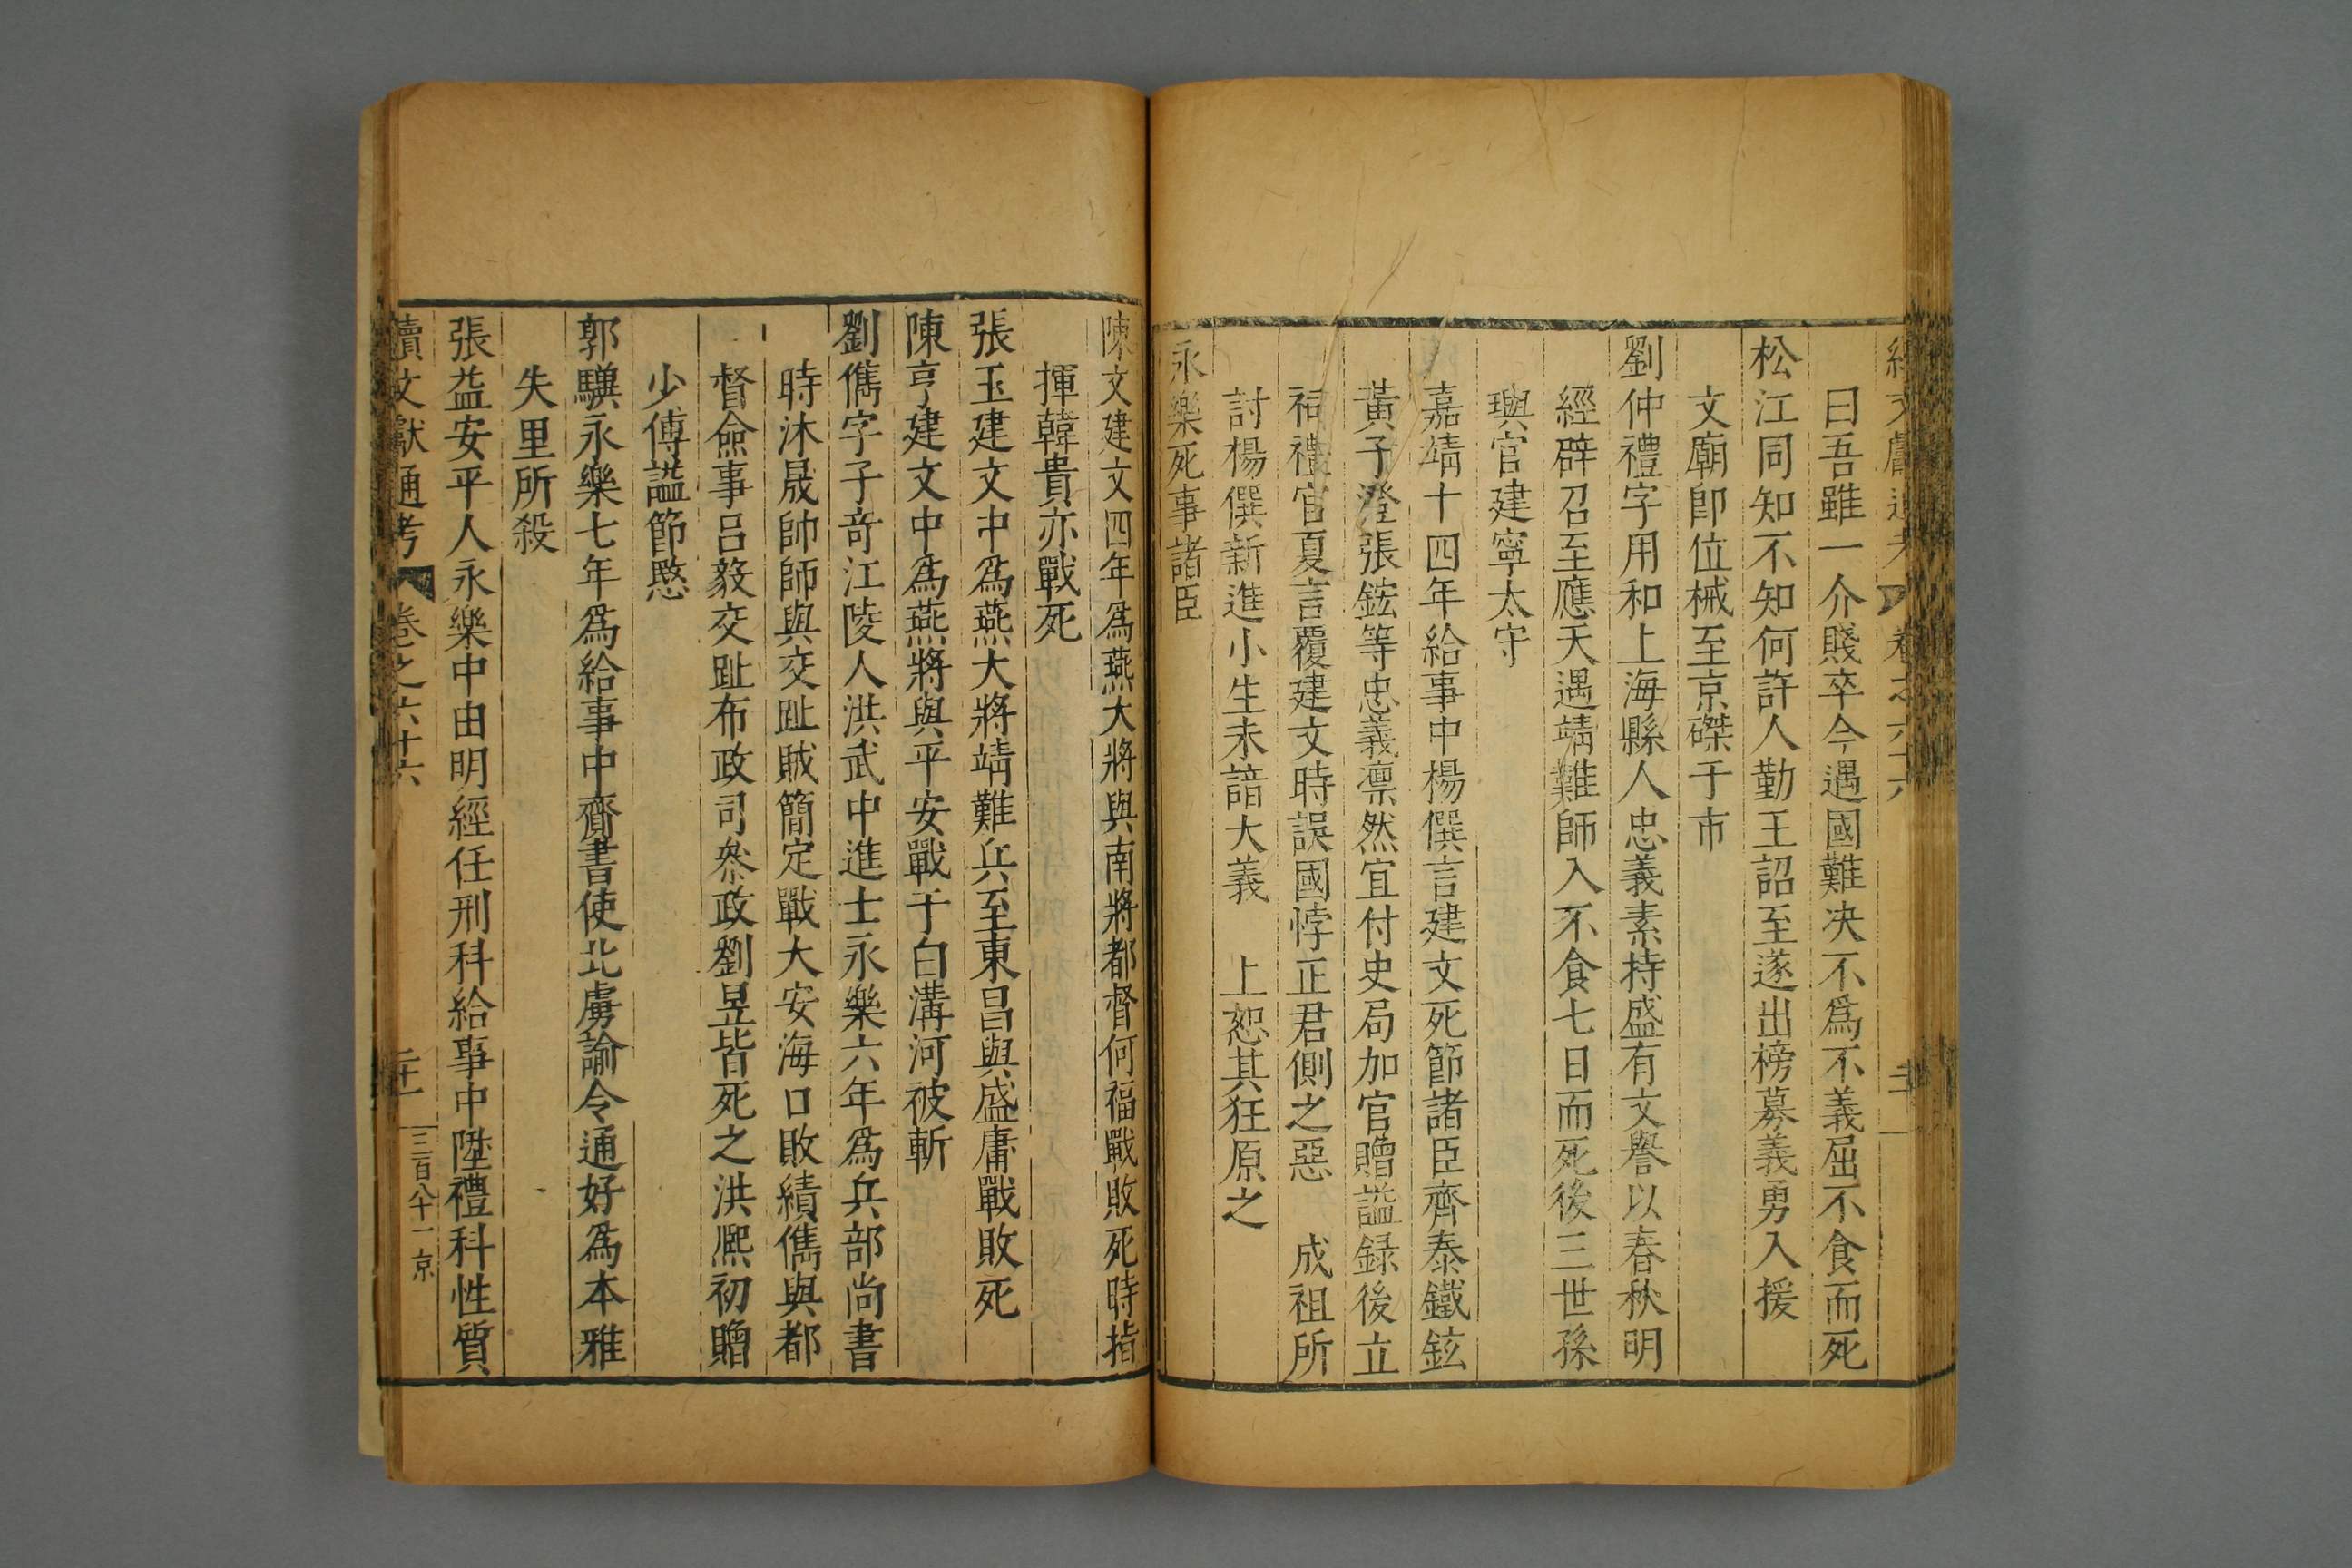 曰吾雖一介賤卒今遇國難决不爲不義屈不食而死
松江同知不知何許人勤王詔至遂出榜募義勇入援
文廟即位械至京磔于市
劉仲禮字用和上海縣人忠義素持盛有文譽以春秋明
經辟召至應天遇靖難師入不食七日而死後三世孫
璵官建寧太守
嘉靖十四年給事中楊僎言建文死節諸臣齊泰鐵鉉
黃子澄張鉉等忠義凛然宜付史局加官贈謚録後立
祠禮官夏言覆建文時誤國悖正君側之惡　成祖所
討楊僎新進小生未諳大義　上恕其狂原之
永樂死事諸臣
陳文建文四年爲燕大將與南將都督何福戰敗死時指
揮韓貴亦戰死
張玉建文中爲燕大將靖難兵至東昌與盛庸戰敗死
陳亨建文中爲燕將與平安戰于白溝河被斬
劉儁字子奇江陵人洪武中進士永樂六年爲兵部尚書
時沐晟帥師與交趾賊簡定戰大安海口敗績儁與都
督僉事呂毅交趾布政司叅政劉昱皆死之洪熈初贈
少傅謚節愍
郭驥永樂七年爲給事中齎書使北虜諭令通好爲本雅
失里所殺
張益安平人永樂中由明經任刑科給事中陞禮科性質
續文獻通考　卷之六十六　三百八十一　京